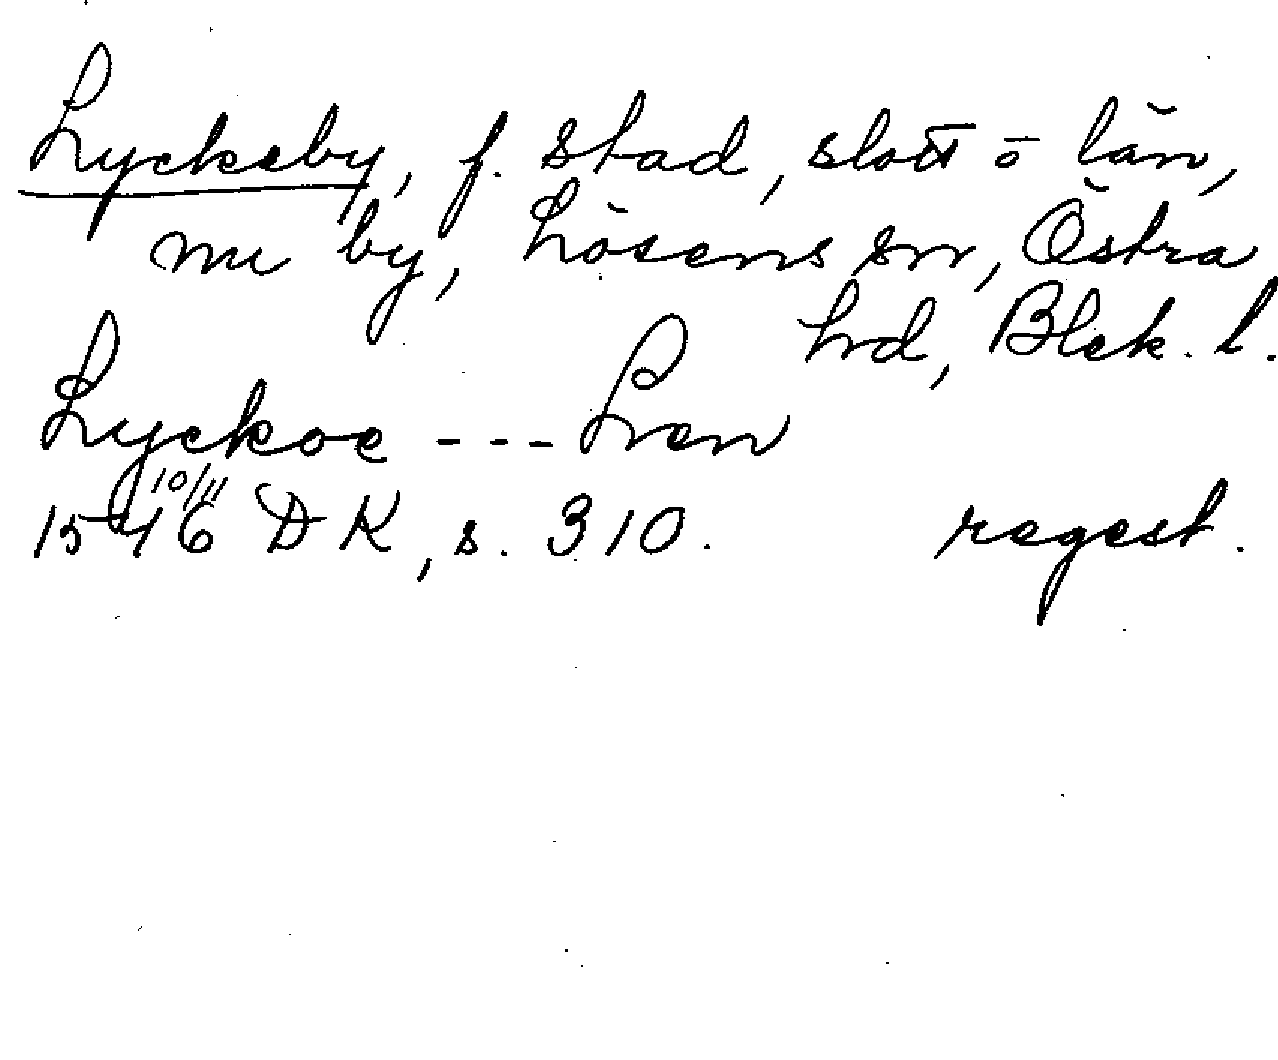 Lyckeby, f. stad, slott o län,
nu by, Lösens sn, Östra
hd, Blek. l.
Lyckoe --- Len
10/11
1546 DK, s. 310. regest.